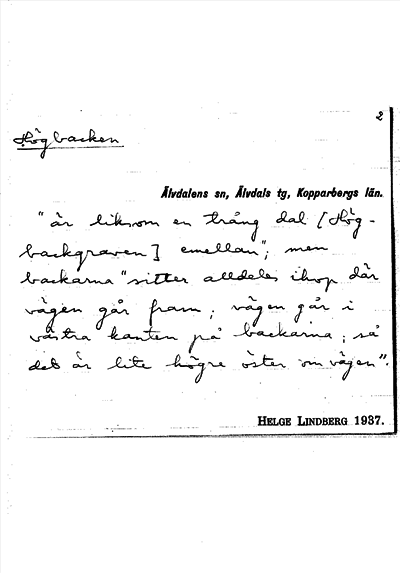 2
Högbacken
Älvdalens sn, Älvdals tg, Kopparbergs län.
"är liksom en trång dal [Hög-
backgraven] emellan"; men
backarna "sitter alldeles ihop där
vägen går fram; vägen går i
västra kanten på backarna; så
det är lite högre öster om vägen".
HELGE LINDBERG 1937.